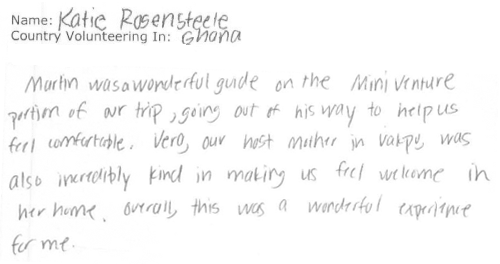 Name: Katie Rosensteele
Country Volunteering In: Ghana
Martin was a wonderful guide on the Mini Venture
portion of our trip, going out of his way to help us
feel comfortable. Vero, our host mother in Vakpo, was
also incredibly kind in making us feel welcome in
her home. Overall, this was a wonderful experience
for me.